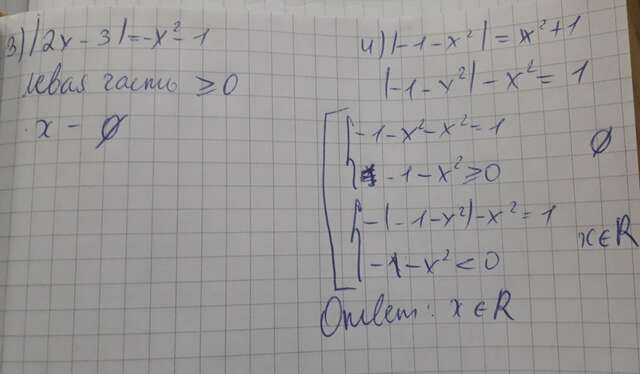 3) |2x - 3| = -x² - 1
левая часть ≥ 0
x - ∅
4) |-1-x²| = x²+1
|-1-x²| - x² = 1
-1-x²-x² = 1
-1-x² ≥ 0
∅
-(-1-x²)-x² = 1
-1-x² < 0
x∈R
Ответ: x∈R